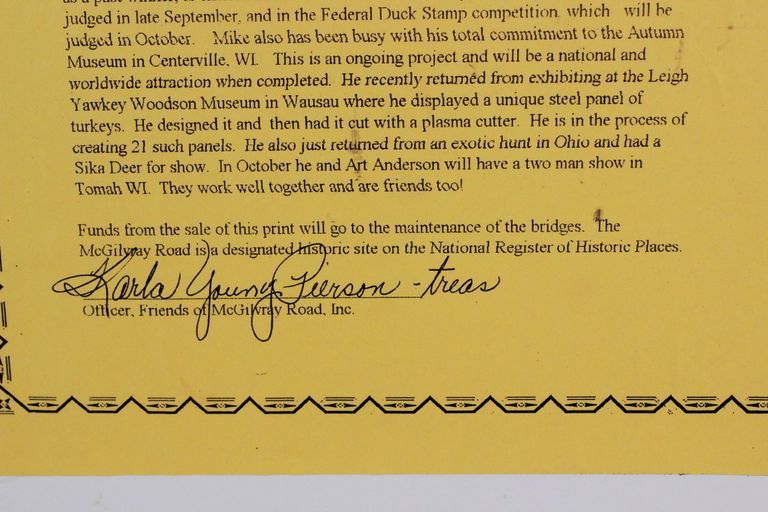 judged in late September, and in the Federal Duck Stamp competition which will be
judged in October. Mike also has been busy with his total commitment to the Autumn
Museum in Centerville, WI. This is an ongoing project and will be a national and
worldwide attraction when completed. He recently returned from exhibiting at the Leigh
Yawkey Woodson Museum in Wausau where he displayed a unique steel panel of
turkeys. He designed it and then had it cut with a plasma cutter. He is in the process of
creating 21 such panels. He also just returned from an exotic hunt in Ohio and had a
Sika Deer for show. In October he and Art Anderson will have a two man show in
Tomah WI. They work well together and are friends too!
Funds from the sale of this print will go to the maintenance of the bridges. The
McGilvray Road is a designated historic site on the National Register of Historic Places.
Karla Young Pierson - treas
Officer, Friends of McGilvray Road, Inc.